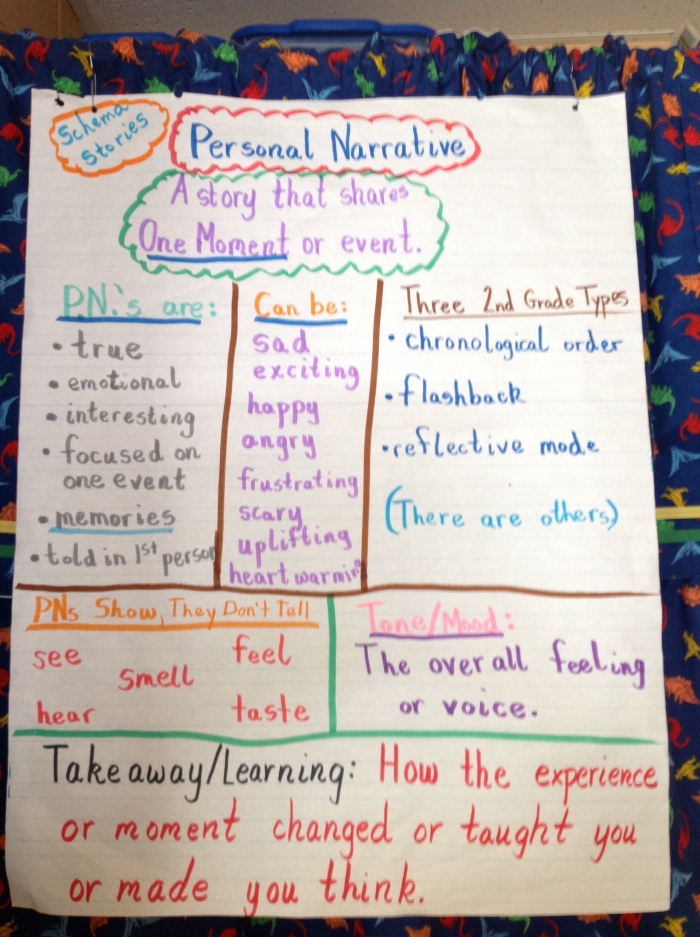 Schema
Stories
Personal Narrative
A story that shares
One Moment or event.
P.N.'s are:
• true
• emotional
• interesting
• focused on
one event
• memories
• told in 1st person
Can be:
sad
exciting
happy
angry
frustrating
scary
uplifting
heartwarming
Three 2nd Grade Types
• chronological order
• flashback
• reflective mode
(There are others)
PNs Show, They Don't Tell
see
smell
feel
hear
taste
Tone/Mood:
The overall feeling
or voice.
Takeaway/Learning: How the experience
or moment changed or taught you
or made you think.